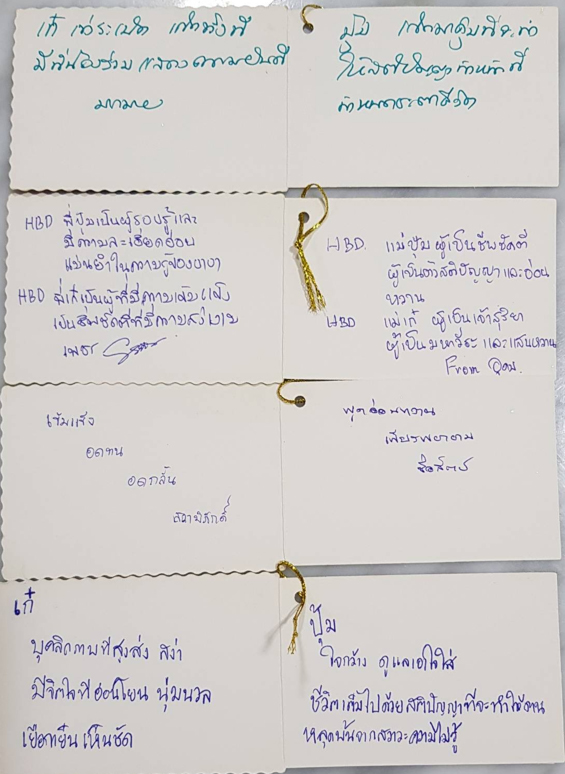 เก๋
มีพี่น้องร่วม แสดงความยินดี
มากมาย
ปุ้ม
ให้สติปัญญาทำหน้าที่
HBD พี่ปุ้มเป็นผู้รอบรู้และ
มีความละเอียดอ่อน
แม่นยำในความรู้ของเขา
HBD พี่เก๋เป็นผู้ที่มีความเข้มแข็ง
เป็นชีพชัดที่ที่มีความสง่างาม
เพชร
HBD. แม่ปุ้ม ผู้เป็นชีพชัดที่
ผู้เป็นตัวสติปัญญาและอ่อน
หวาน
HBD แม่เก๋ ผู้เป็นเจ้าสุริยา
ผู้เป็นมหาวีระ และแสนหวาน
From
เข้มแข็ง
อดทน
อดกลั้น
สวามิภักดิ์
พูดอ่อนหวาน
เพียรพยายาม
ซื่อสัตย์
เก๋
บุคลิกภาพที่สูงส่ง สง่า
มีจิตใจที่อ่อนโยน นุ่มนวล
เยือกเย็น เห็นชัด
ปุ้ม
ใจกว้าง ดูแลเอาใจใส่
ชีวิตเต็มไปด้วยสติปัญญาที่จะทำให้
หลุดพ้นจากสภาวะความไม่รู้